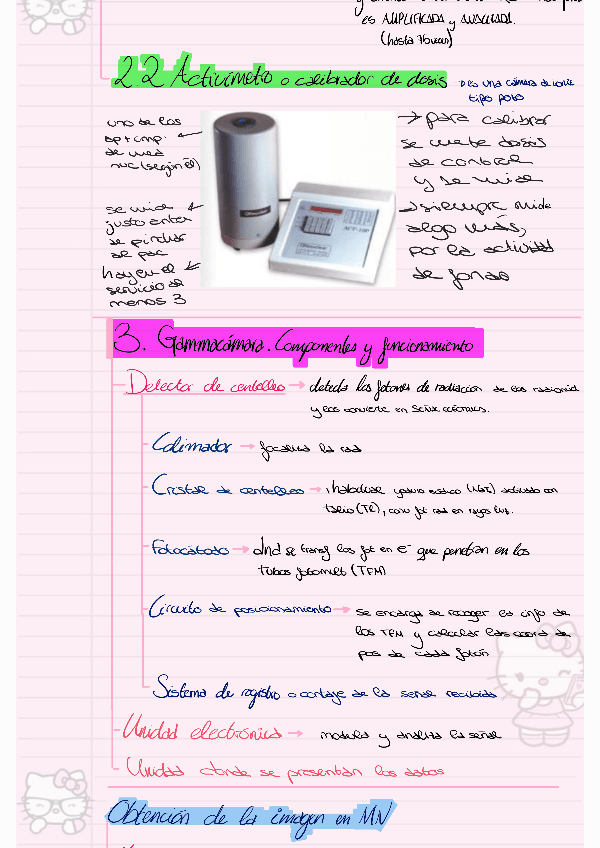 es AMPLIFICADA y ANALIZADA.
(hasta 7
2.2 Activímetro o calibrador de dosis → es una cámara de ioniz
tipo pozo
uno de los
ap + imp.
de med
nuc (según él)
→ para calibrar
se mete dosis
de control
y se mide
se mide
justo antes
de pinchar
al pac
→ siempre mide
algo más,
por la actividad
de fondo
hay en el
servicio al
menos 3
3. Gammacámara. Componentes y funcionamiento
Detector de centelleo → detecta los fotones de radiación de los
y los convierte en señal
Colimador → focaliza la rad
Cristal de centelleo → yoduro sódico (NaI) activado con
talio (Tl), conv fot rad en rayos luz.
Fotocátodo → dnd se transf los fot en e⁻ que penetran en los
tubos fotomult (TFM)
Circuito de posicionamiento → se encarga de recoger la info de
los TFM y calcular las coord de
pos de cada fotón
Sistema de registro o contaje de la señal recibida
Unidad electrónica → modula y analiza la señal
Unidad donde se presentan los datos
Obtención de la imagen en MN